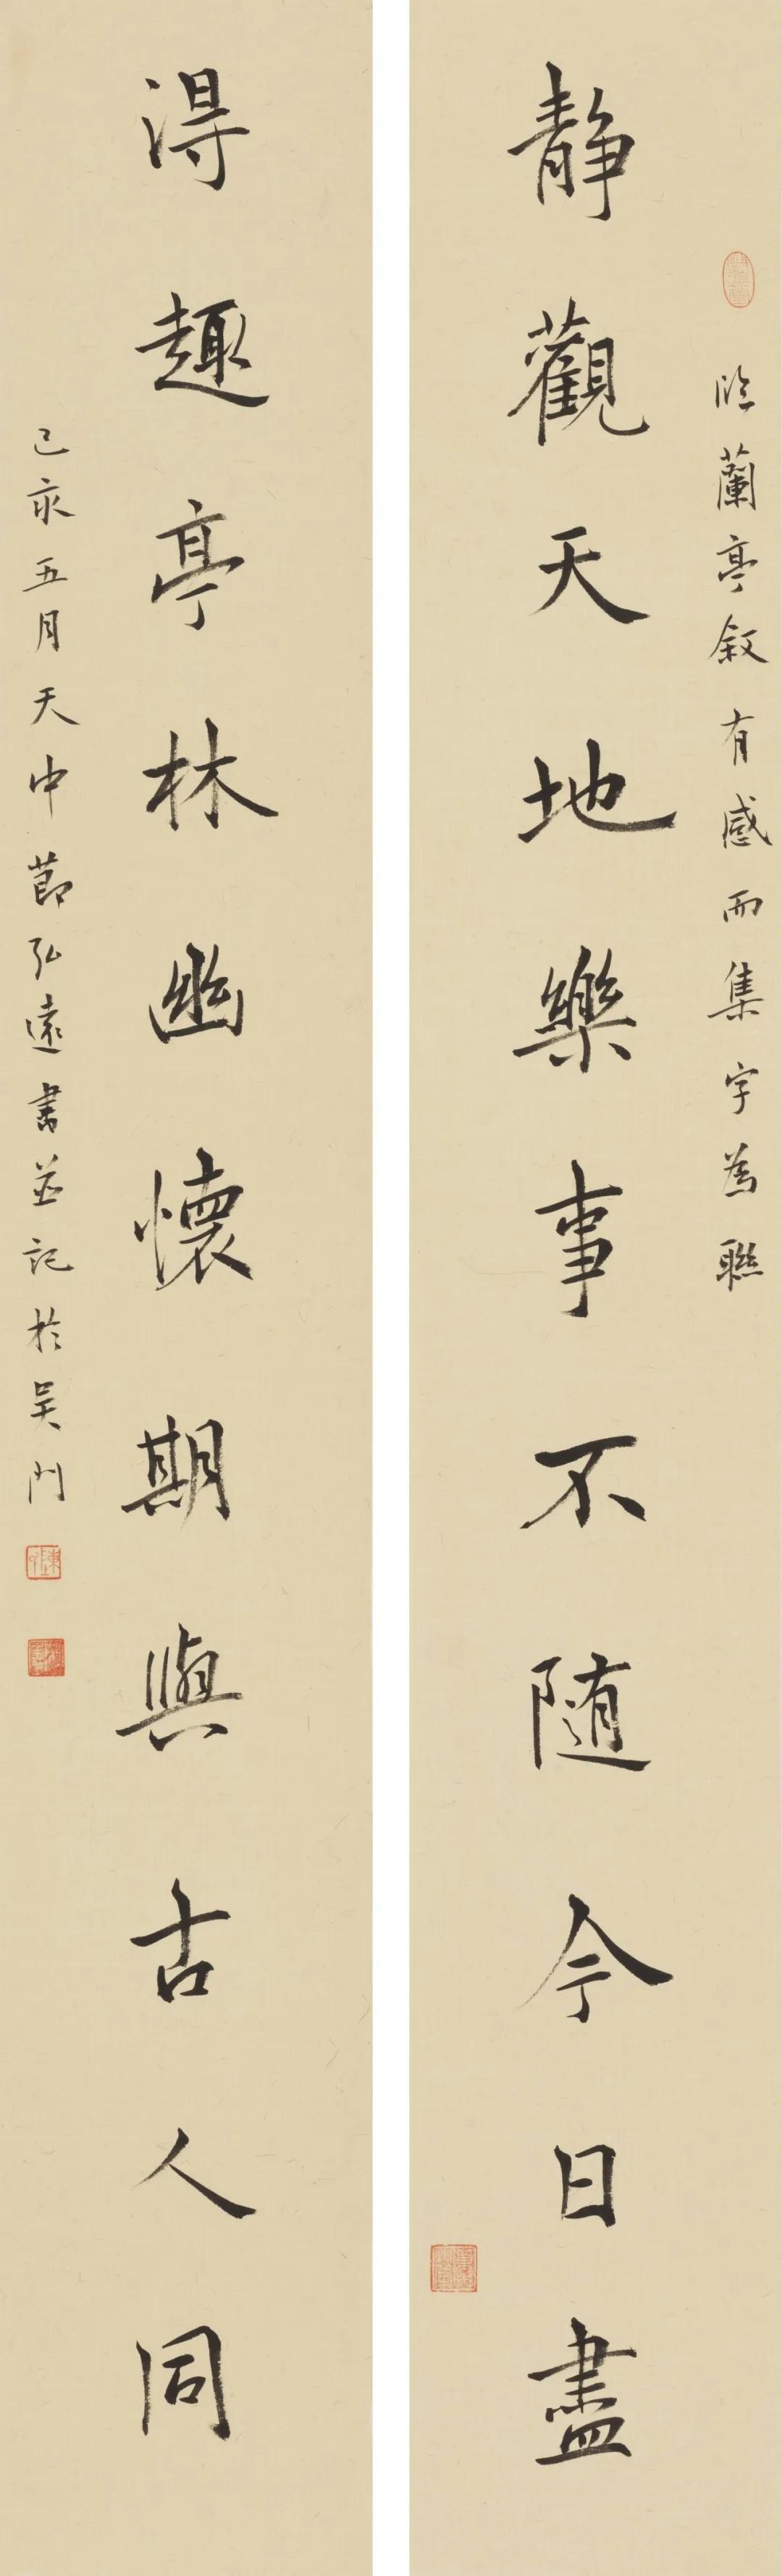 臨蘭亭叙有感而集字為聯
静觀天地樂事不随今日盡
得趣亭林幽懷期與古人同
己亥五月天中節弘遠書並記於吴門